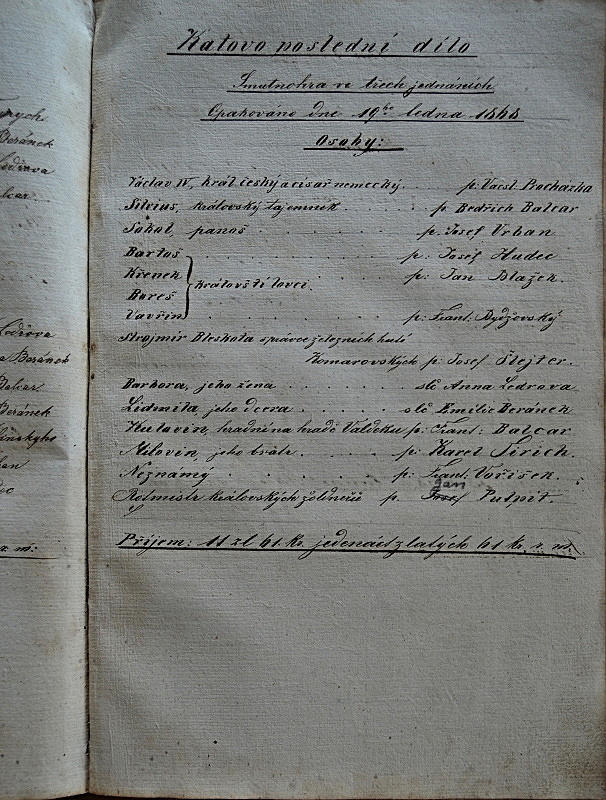 Katovo poslední dílo
Smutnohra ve třech jednáních
Opakováno dne 19ho ledna 1868
Osoby:
Václav IV, král český a císař německý. . . p. Vácsl. Procházka
Silvius, královský tajemník . . . . p. Bedřich Balcar
Sokol, panoš . . . . . p. Josef Urban
Bartoš . . . . . p. Josef Hudec
Křenek . . . . . p. Jan Blažek.
královští lovci.
Bureš
Vavřín . . . . . p. Frant. Bydžovský
Strojmír Bleskota správce železních hutí
Komarovských p. Josef Šlejter.
Barbora, jeho žena . . . . . . slč Anna Ledrova
Lidmila jeho dcera . . . . . . slč Emilie Beránek
hradní na hradě Valdeku p. Frant. Balcar
Milovín, jeho bratr. . . . . p. Karel Širich.
Neznámý . . . . . . p. Frant. Voříšek.
Rotmistr královských žoldnéřů p. Jan Josef Pulpit.
Příjem: 11 zl 61 Kr. jedenáct zlatých 61 kr. r. m.
rných
Beránek
Ledrova
Balcar
Ledrova
a Beránek
Balcar
Beránek
r. m: